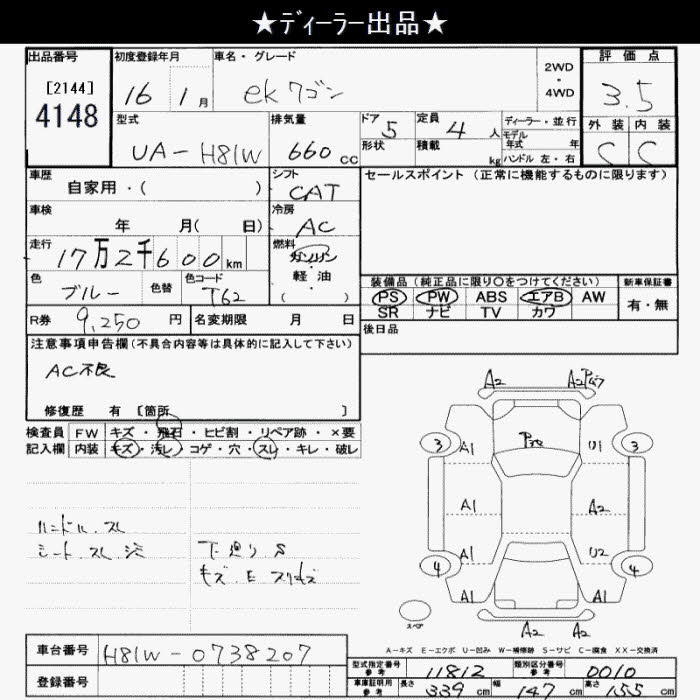 ★ディーラー出品★
出品番号 初度登録年月 車名・グレード 2WD・4WD 評価点
[2144]
4148
16 1月 ekワゴン 3.5
型式 排気量 ドア 5 定員 4人 ディーラー・並行 外装 内装
UA-H81W 660cc 形状 積載 kg モデル年式 年 C C
ハンドル 左・右
車歴 自家用・( ) シフト CAT セールスポイント(正常に機能するものに限ります)
車検 年 月( 日) 冷房 AC
走行 17万2千600km 燃料 ガソリン・軽油・( )
色 ブルー 色替 色コード T62
装備品(純正品に限り○をつけてください) 新車保証書
PS PW ABS エアB AW 有・無
SR ナビ TV カワ
R券 9,250円 名変期限 月 日 後日品
注意事項申告欄(不具合内容等は具体的に記入して下さい)
AC不良
修復歴 有 [箇所 ]
検査員 FW キズ・飛石・ヒビ割・リペア跡・×要
記入欄 内装 キズ・汚レ・コゲ・穴・スレ・キレ・破レ
ハンドル、スレ
シート、スレ
下廻りS
キズ、E
A2 A2
3 A1 U1 3
A1 A2
A1 U2
4 A1 A1 4
A2 A2
スペア
A-キズ E-エクボ U-凹み W-補修跡 S-サビ C-腐食 XX-交換済
車台番号 H81W-0738207
登録番号
型式指定番号 参考 11812 類別区分番号 参考 0010
車庫証明用 参考 長さ 339cm 幅 147cm 高さ 155cm